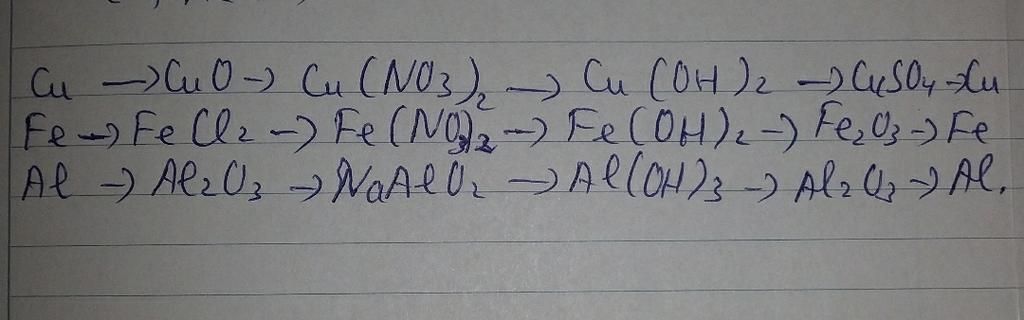 Cu → CuO → Cu(NO3)2 → Cu(OH)2 → CuSO4 → Cu
Fe → FeCl2 → Fe(NO3)2 → Fe(OH)2 → Fe2O3 → Fe
Al → Al2O3 → NaAlO2 → Al(OH)3 → Al2O3 → Al.